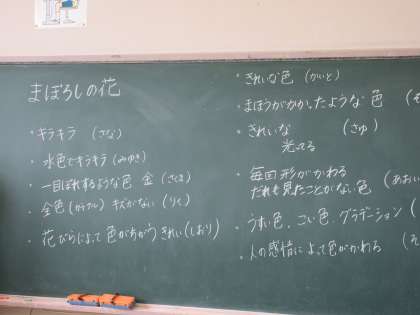 まぼろしの花
・キラキラ (さな)
・水色でキラキラ(みゆき)
・一目ぼれするような色 金 (さくま)
・全色(カラフル) キズがない (りく)
・花びらによって色がちがう きれい(しおり)
・きれいな色 (かいと)
・まほうがかかったような色 (
・きれいな (さゆ)
光ってる
・毎回形がかわる
だれも見たことがない色 (あおい
・うすい色、こい色、グラデーション (
・人の感情によって色がかわる (そ